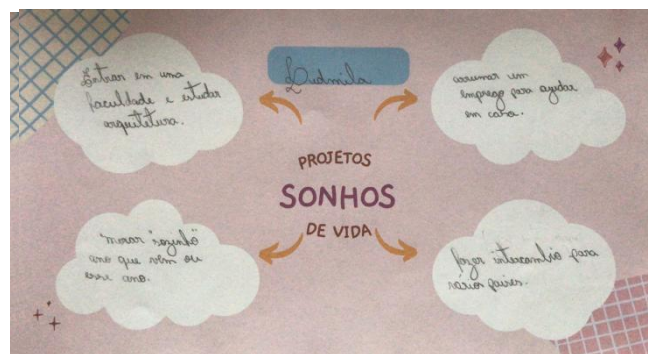 Ludmila
Entrar em uma
faculdade e estudar
arquitetura.
arrumar um
emprego para ajudar
em casa.
PROJETOS
SONHOS
DE VIDA
morar sozinhO
ano que vêm ou
esse ano.
fazer intercambio para
vários paises.